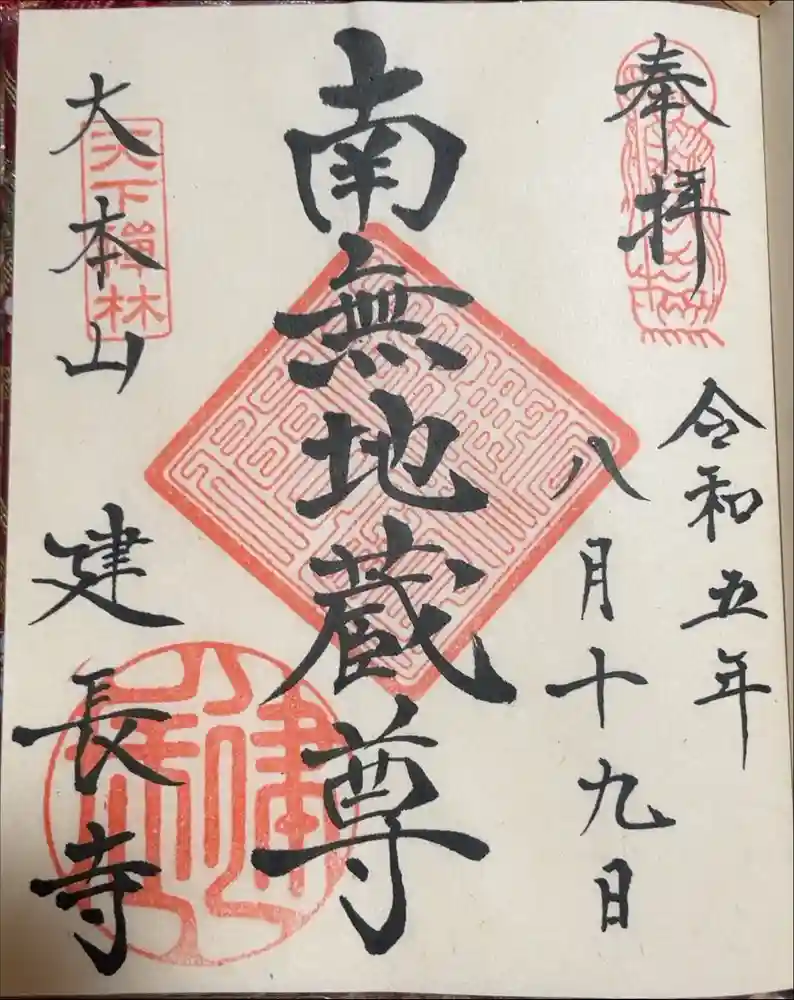 奉拝
令和五年
八月十九日
南無地蔵尊
天下禅林
大本山
建長寺